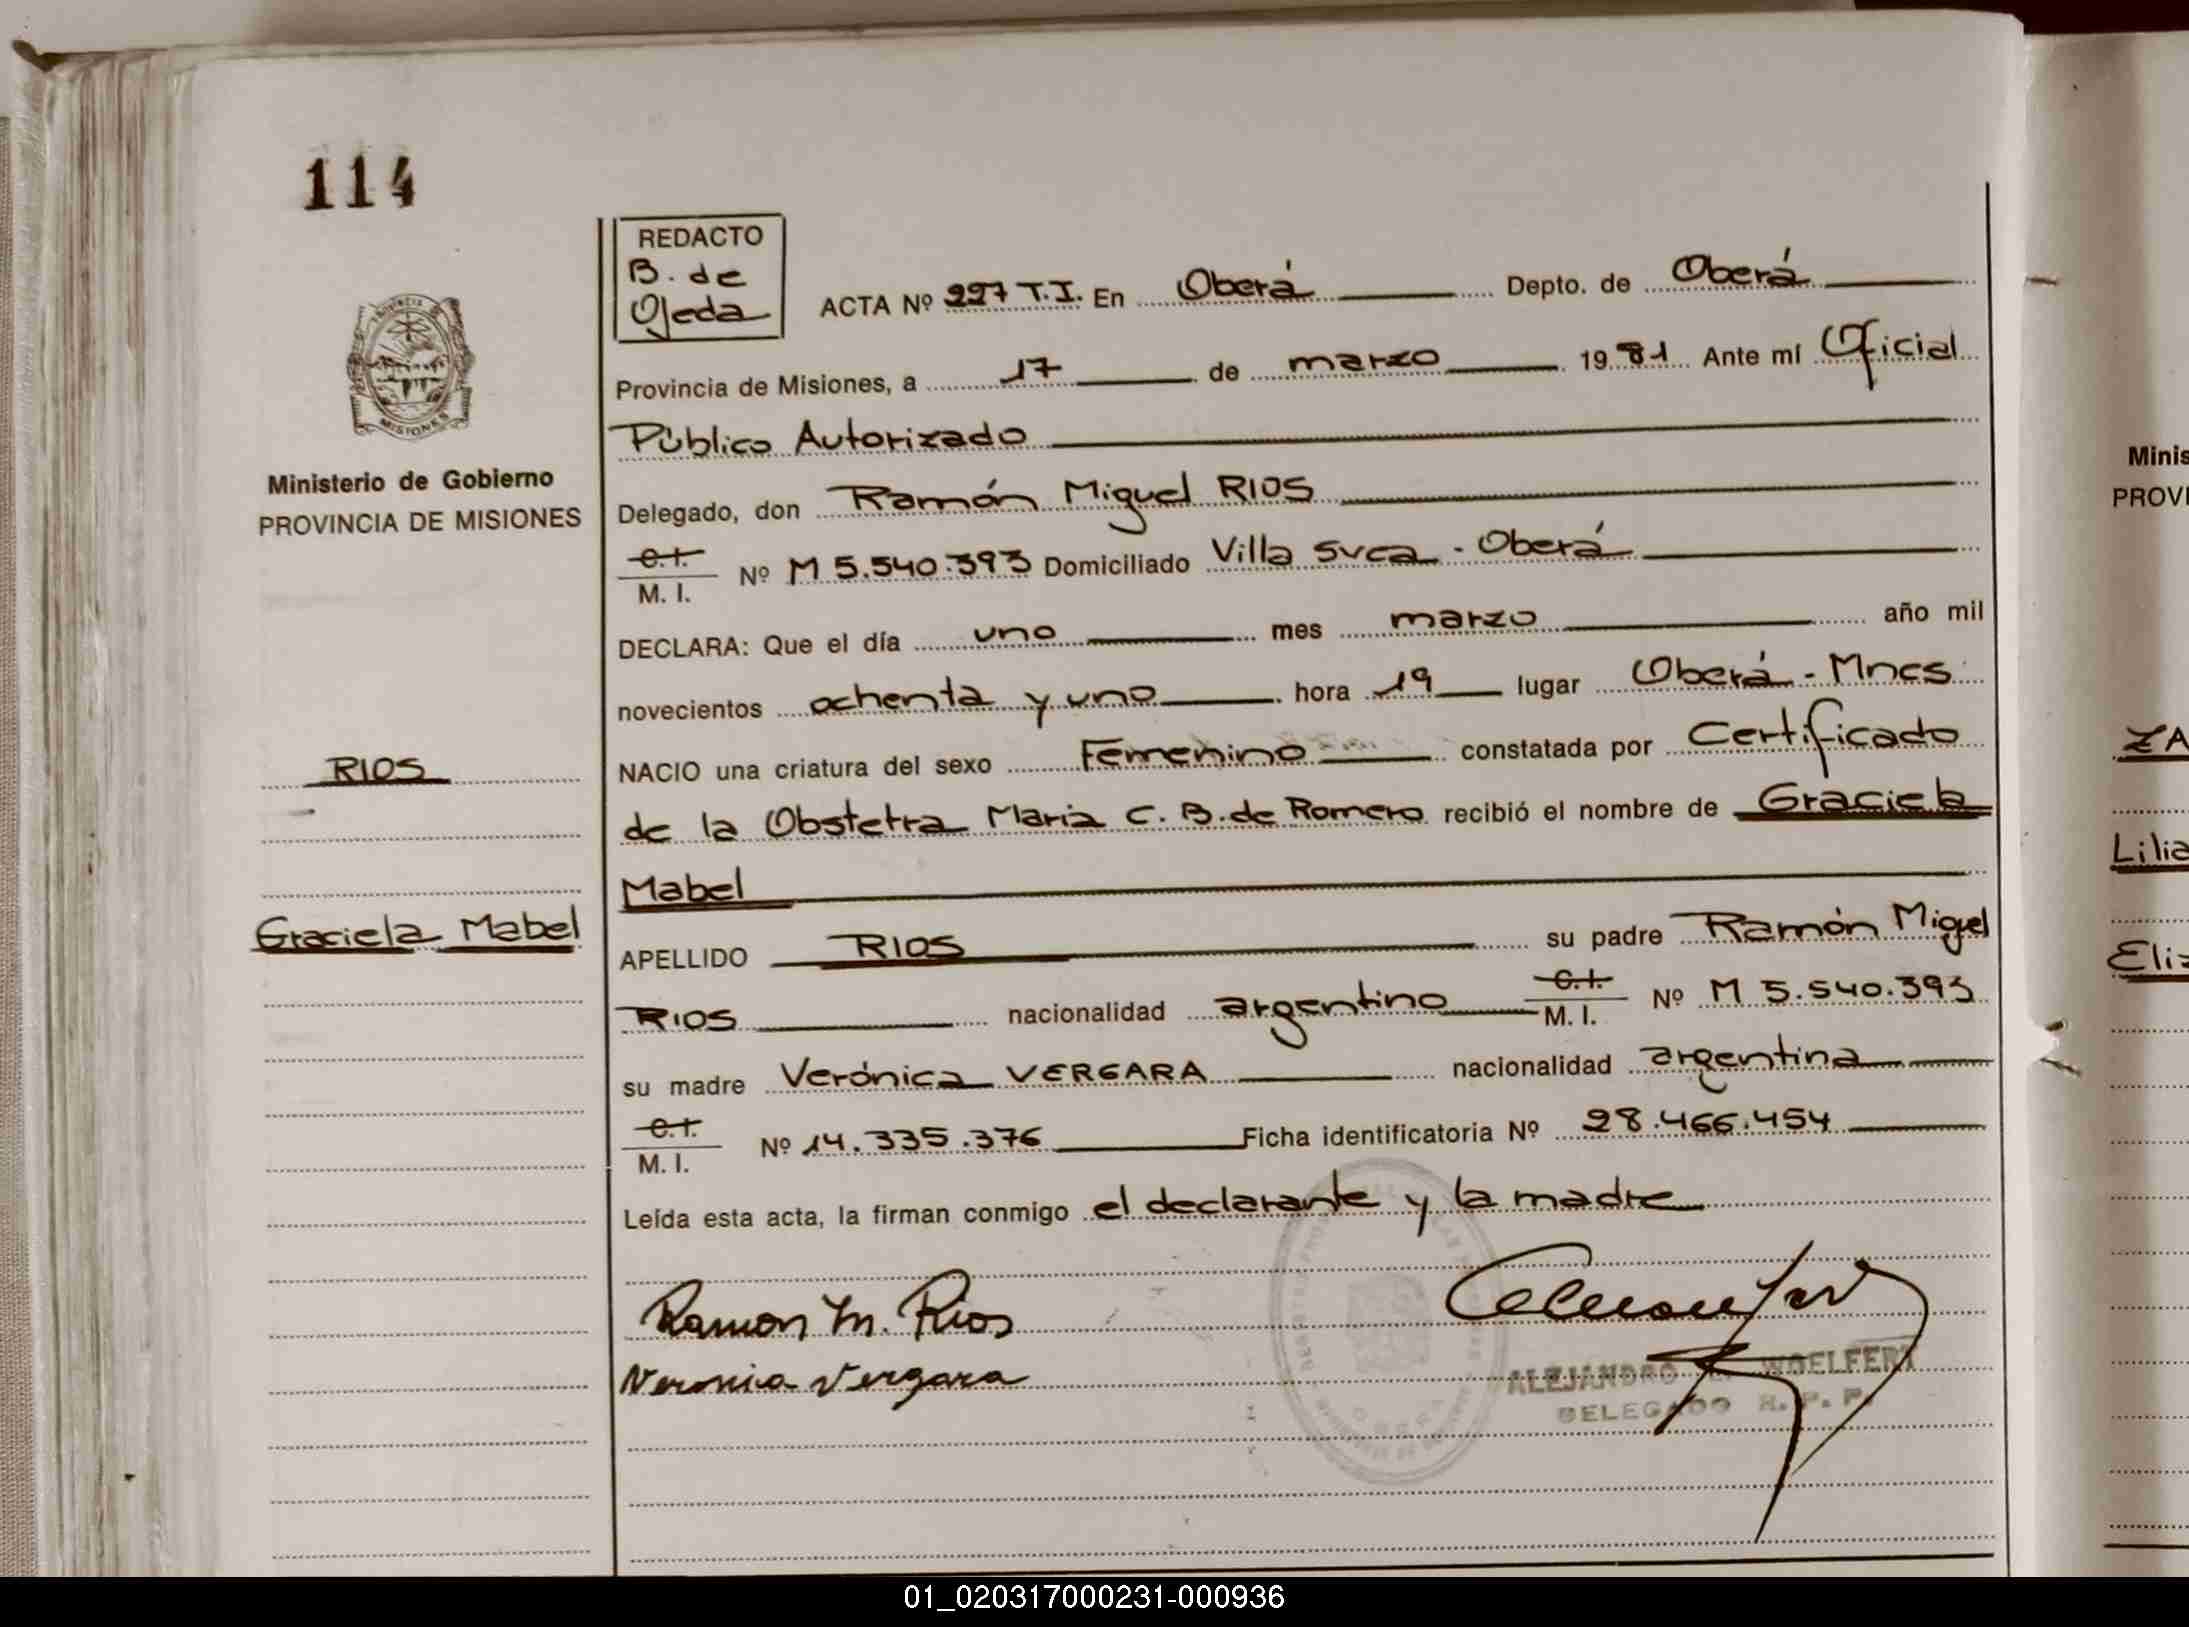 114
REDACTO
B. de
Ojeda
ACTA Nº 227 T.I. En Oberá Depto. de Oberá
Provincia de Misiones, a 17 de marzo 1981 Ante mí Oficial
Público Autorizado
MISIONES
Ministerio de Gobierno
PROVINCIA DE MISIONES
Delegado, don Ramón Miguel RIOS
C.I.
M. I. Nº M 5.540.393 Domiciliado Villa Svea - Oberá
DECLARA: Que el día uno mes marzo año mil
novecientos ochenta y uno hora 19 lugar Oberá - Mnes
NACIO una criatura del sexo Femenino constatada por Certificado
RIOS
de la Obstetra Maria C. B. de Romero recibió el nombre de Graciela
Mabel
Graciela Mabel
APELLIDO RIOS su padre Ramón Miguel
RIOS nacionalidad argentino C.I. M. I. Nº M 5.540.393
su madre Verónica VERGARA nacionalidad argentina
C.I.
M. I. Nº 14.335.376 Ficha identificatoria Nº 28.466.454
Leída esta acta, la firman conmigo el declarante y la madre
Ramon M. Rios
Veronica Vergara
ALEJANDRO WOELFERT
DELEGADO R. P. P.
OBERA
Minis
PROVI
ZA
Lilia
Eli
01_020317000231-000936